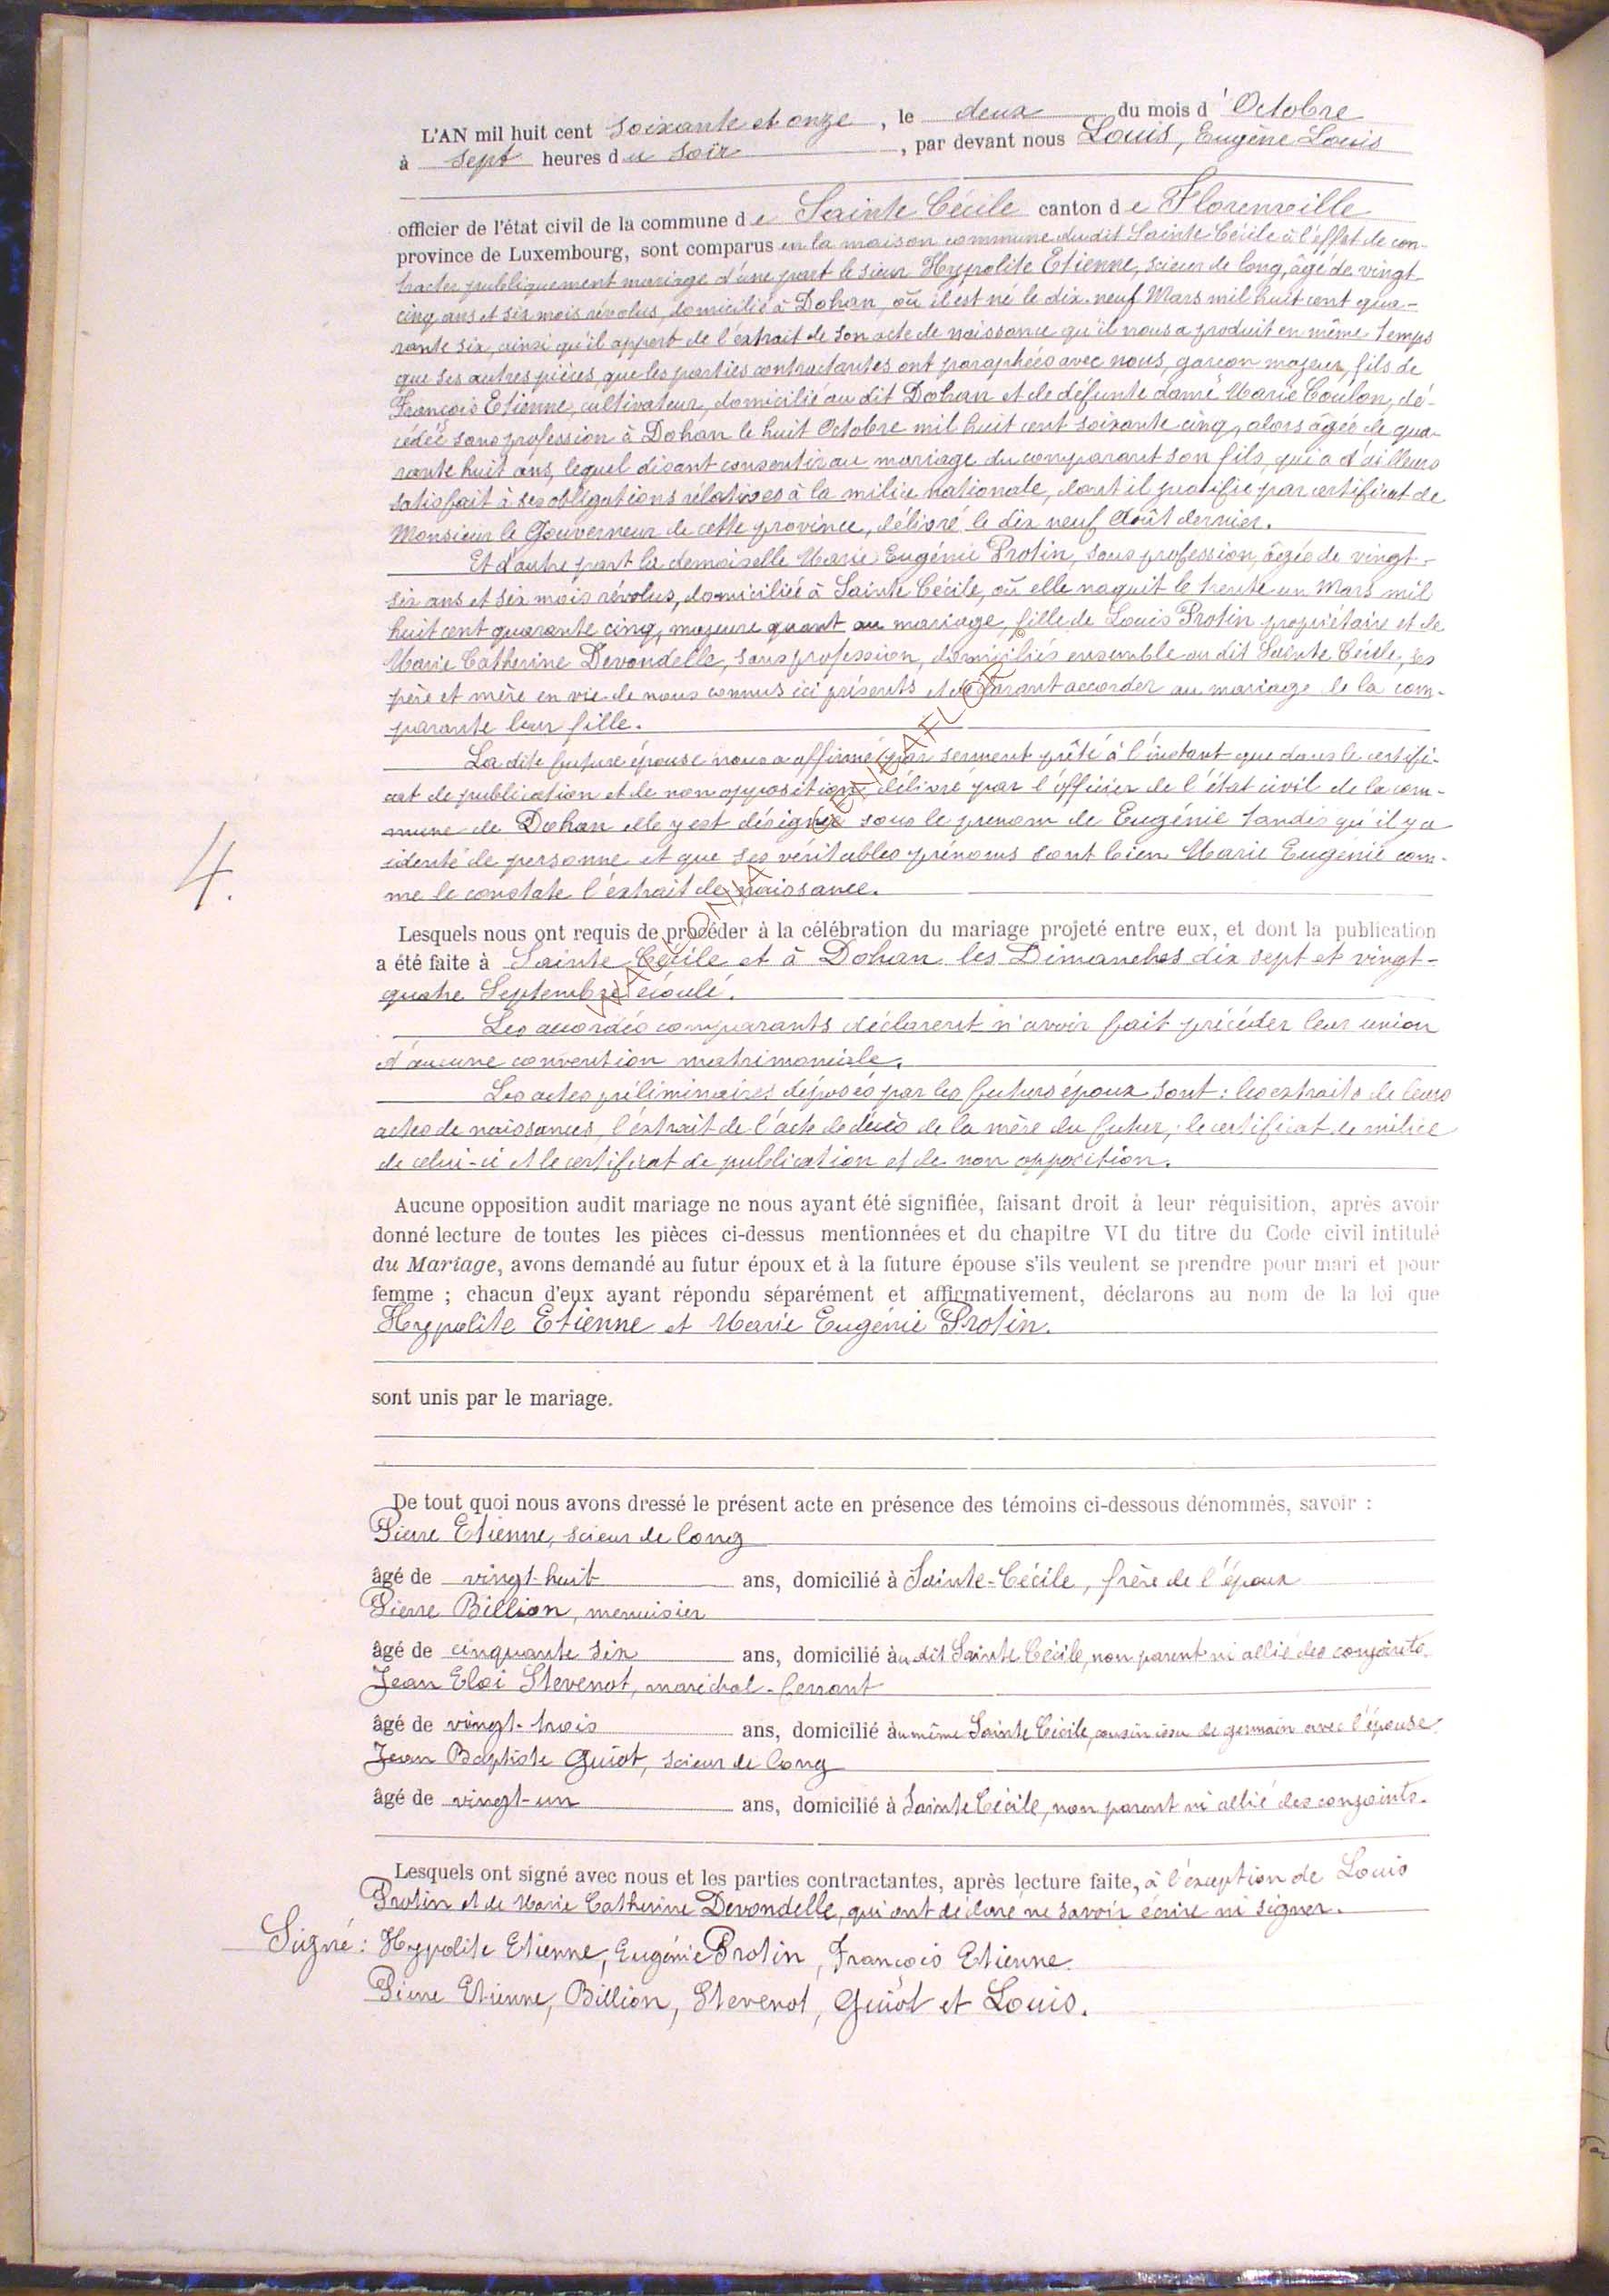 L'AN mil huit cent soixante et onze, le deux du mois d'Octobre
à sept heures du soir, par devant nous Louis, Eugène Louis
officier de l'état civil de la commune de Sainte Cécile canton de Florenville
province de Luxembourg, sont comparus en la maison commune du dit Sainte Cécile à l'effet de con-
tracter publiquement mariage d'une part le sieur Hyppolite Etienne, scieur de long, âgé de vingt
cinq ans et six mois révolus, domicilié à Dohan, où il est né le dix-neuf Mars mil huit cent qua-
rante six, ainsi qu'il appert de l'extrait de son acte de naissance qu'il nous a produit en même temps
que ses autres pièces, que les parties contractantes ont paraphées avec nous, garçon majeur, fils de
François Etienne, cultivateur, domicilié au dit Dohan et de défunte dame Marie Coulon, dé-
cédée sans profession à Dohan le huit Octobre mil huit cent soixante cinq, alors âgée de qua-
rante huit ans, lequel disant consentir au mariage du comparant son fils, qui a d'ailleurs
satisfait à ses obligations rélatives à la milice nationale, dont il justifie par certificat de
Monsieur le Gouverneur de cette province, délivré le dix neuf Août dernier.
Et d'autre part la demoiselle Marie Eugénie Protin, sans profession, âgée de vingt-
six ans et six mois révolus, domiciliée à Sainte Cécile, où elle naquit le trente un Mars mil
huit cent quarante cinq, majeure quant au mariage, fille de Louis Protin propriétaire et de
Marie Catherine Devondelle, sans profession, domiciliés ensemble au dit Sainte Cécile, ses
père et mère en vie de nous connus ici présents et déclarant accorder au mariage de la com-
parante leur fille.
La dite future épouse nous a affirmé par serment prêté à l'instant que dans le certifi-
cat de publication et de non opposition délivré par l'officier de l'état civil de la com-
mune de Dohan elle y est désignée sous le prenom de Eugénie tandis qu'il y a
identé de personne et que ses véritables prénoms sont bien Marie Eugénie com-
me le constate l'extrait de naissance.
4.
Lesquels nous ont requis de procéder à la célébration du mariage projeté entre eux, et dont la publication
a été faite à Sainte Cécile et à Dohan les Dimanches dix sept et vingt-
quatre Septembre écoulé.
Les accordés comparants déclarent n'avoir fait précéder leur union
d'aucune convention matrimoniale.
Les actes préliminaires déposés par les futurs époux sont : les extraits de leurs
actes de naissances, l'extrait de l'acte de décès de la mère du futur, le certificat de milice
de celui-ci et le certificat de publication et de non opposition.
Aucune opposition audit mariage ne nous ayant été signifiée, faisant droit à leur réquisition, après avoir
donné lecture de toutes les pièces ci-dessus mentionnées et du chapitre VI du titre du Code civil intitulé
du Mariage, avons demandé au futur époux et à la future épouse s'ils veulent se prendre pour mari et pour
femme ; chacun d'eux ayant répondu séparément et affirmativement, déclarons au nom de la loi que
Hyppolite Etienne et Marie Eugénie Protin.
sont unis par le mariage.
De tout quoi nous avons dressé le présent acte en présence des témoins ci-dessous dénommés, savoir :
Pierre Etienne, scieur de long
âgé de vingt-huit ans, domicilié à Sainte-Cécile, frère de l'époux
Pierre Billion, menuisier
âgé de cinquante six ans, domicilié au dit Sainte Cécile, non parent ni allié des conjoints.
Jean Eloi Stevenot, maréchal-ferrant
âgé de vingt-trois ans, domicilié au même Sainte Cécile, cousin issu de germain avec l'épouse
Jean Baptiste Guiot, scieur de long
âgé de vingt-un ans, domicilié à Sainte Cécile, non parent ni allié des conjoints.
Lesquels ont signé avec nous et les parties contractantes, après lecture faite, à l'exception de Louis
Protin et de Marie Catherine Devondelle, qui ont déclaré ne savoir écrire ni signer.
Signé : Hyppolite Etienne, Eugénie Protin, François Etienne.
Pierre Etienne, Billion, Stevenot, Guiot et Louis.